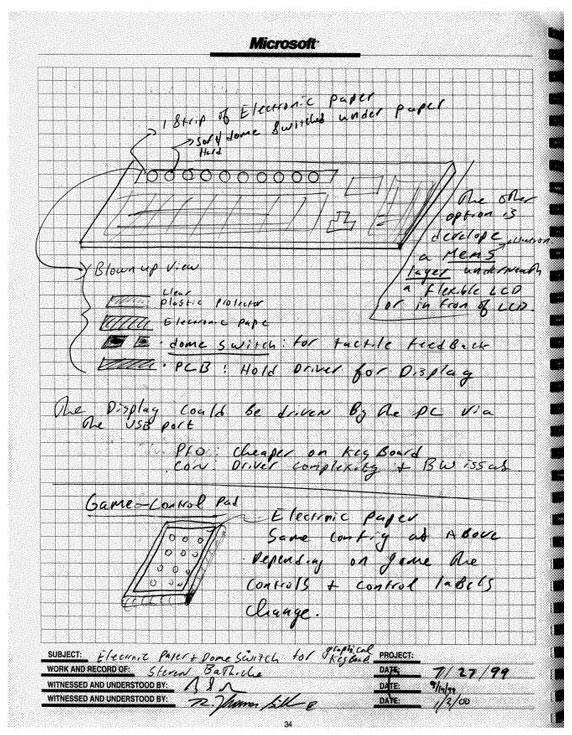 Microsoft
1 Strip of Electronic paper
Soft dome switches under paper
Hard
The other
option is
develope
a MEMS
layer underneath
a flexible LCD
or in fron of LCD.
Blown up View
Clear
plastic protector
Electronic Pape
dome switch: for tactile feedBack
PCB: Hold Driver for Display
The Display could be driven By the PC via
the USB port
Pro: Cheaper on KeyBoard
Con: Driver complexity + BW issues
Game-Control Pad
Electronic Paper
Same config as Above
Depending on game the
controls + control labels
change.
SUBJECT: Electronic Paper + Dome Switch for graphical Keyboard PROJECT:
WORK AND RECORD OF: Steven Bathiche DATE: 7/27/99
WITNESSED AND UNDERSTOOD BY: DATE:
WITNESSED AND UNDERSTOOD BY: DATE: 1/3/00
34